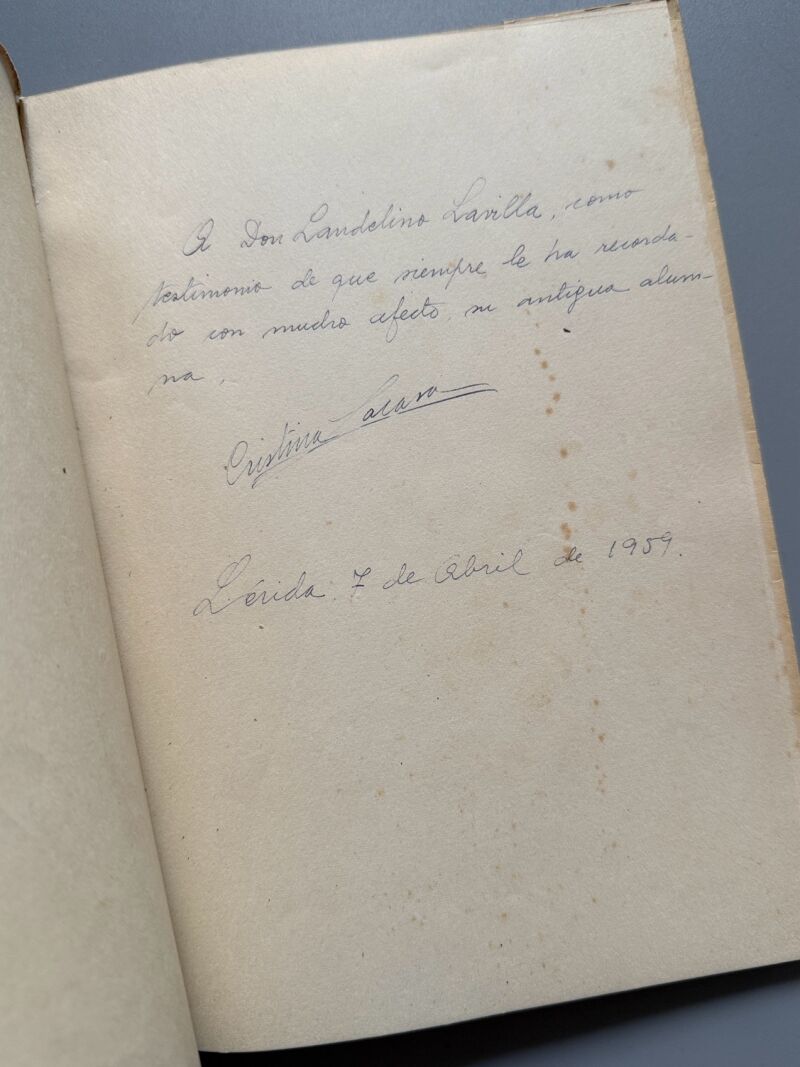 A Don Landelino Lavilla, como
testimonio de que siempre le ha recorda-
do con mucho afecto, su antigua alum-
na,
Cristina Lacasa
Lérida, 7 de Abril de 1959.